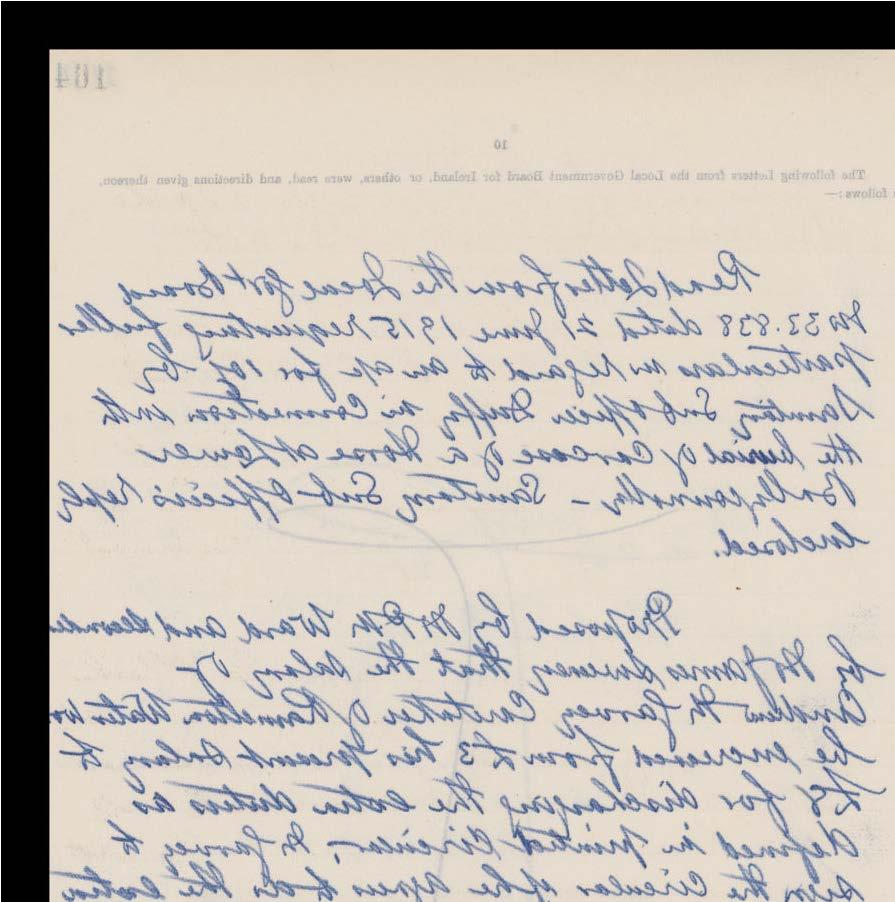 164
10
The following Letters from the Local Government Board for Ireland, or others, were read, and directions given thereon,
follows:—
Read Letter from the Local Govt Board
No 33.838 dated 21 June 1915 requesting fuller
particulars in regard to an a/c for 10/- by
Sanitary Sub Officer Duffy in connection with
the burial of carcase of a Horse at Lower
— Sanitary Sub-Officer's reply
enclosed.
Proposed by Mr P. M. Ward and
by Mr James Sweeney that the salary of
Andrew McGarvey Caretaker of Ramelton Water
be increased from £3 his present salary to
for discharging the extra duties as
defined in printed circular, McGarvey to
sign the circular & the to do the extra